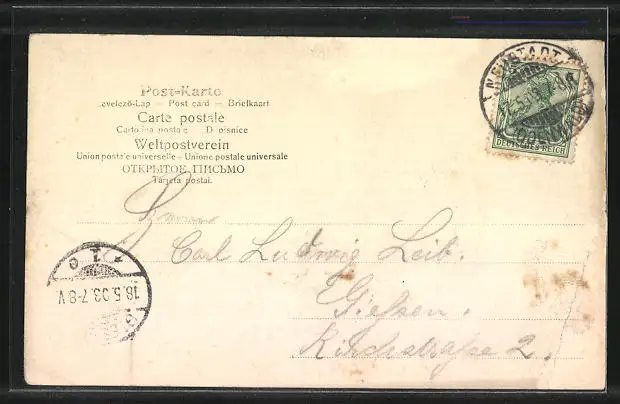 Post-Karte
Levelező-Lap – Post card – Briefkaart
Carte postale
Cartolina postale – Dopisnice
Weltpostverein
Union postale universelle – Unione postale universale
ОТКРЫТОЕ ПИСЬМО
Tarjeta postal.
DEUTSCHES REICH
Carl Ludwig Leib.
Gießen.
Kirchstraße 2.
18.5.03.7-8V.